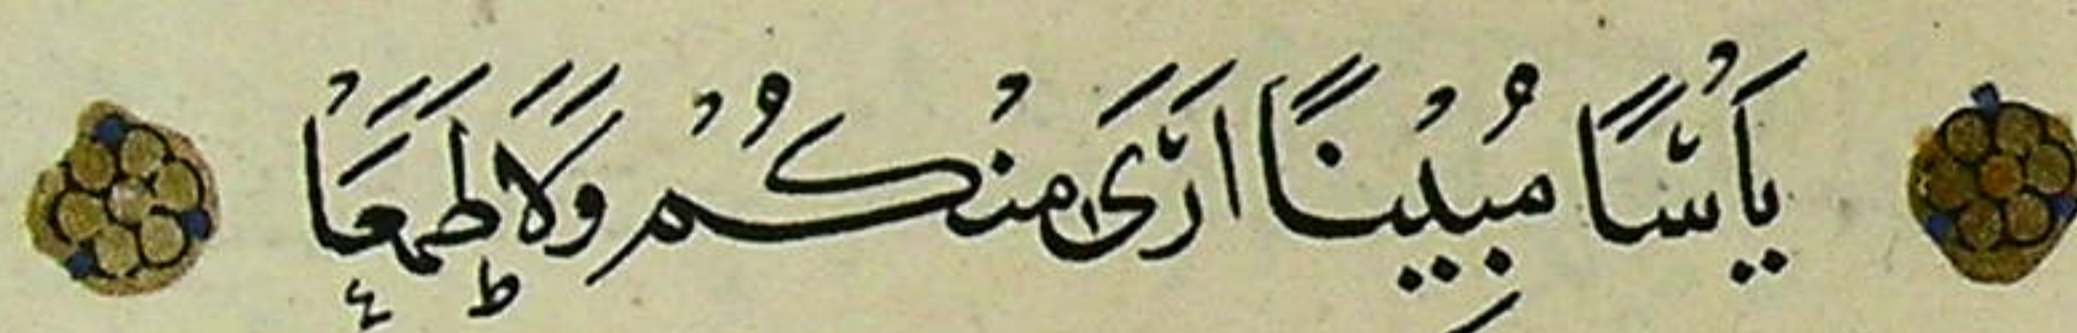 يَأْسًا مُبِيْنًا اَرَى مِنْكُمْ وَلَا طَمَعَا